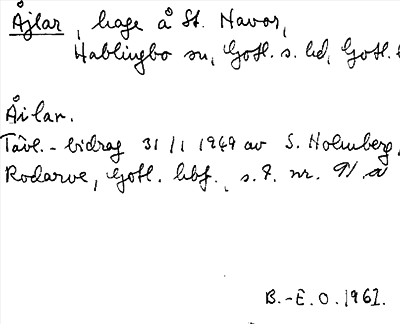 Åjlar, hage å St. Navor,
Hablingbo sn, Gotl. s. hd, Gotl.
Åilar.
Tävl.-bidrag 31/1 1949 av S. Holmberg,
Rodarve, Gotl. hbf., s. 7. nr. 91
B.-E.O. 1962.